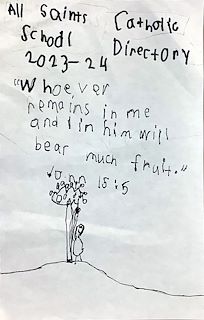 All Saints Catholic
School Directory
2023-24
"Whoever
remains in me
and I in him will
bear much fruit."
John
15:5